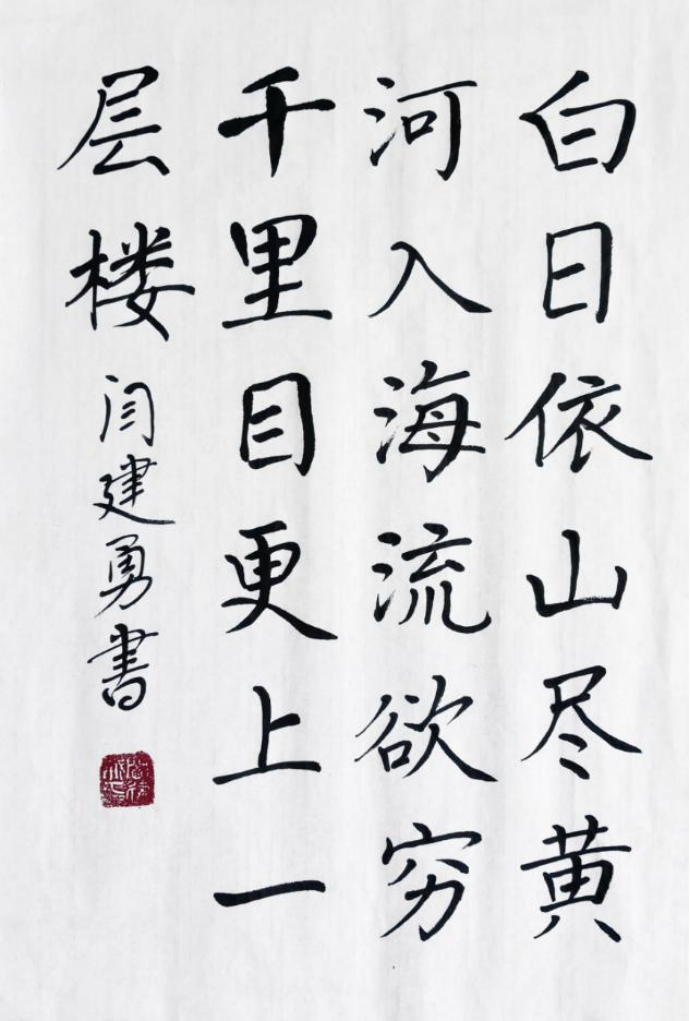 白日依山尽黄
河入海流欲穷
千里目更上一
层楼
闫建勇書